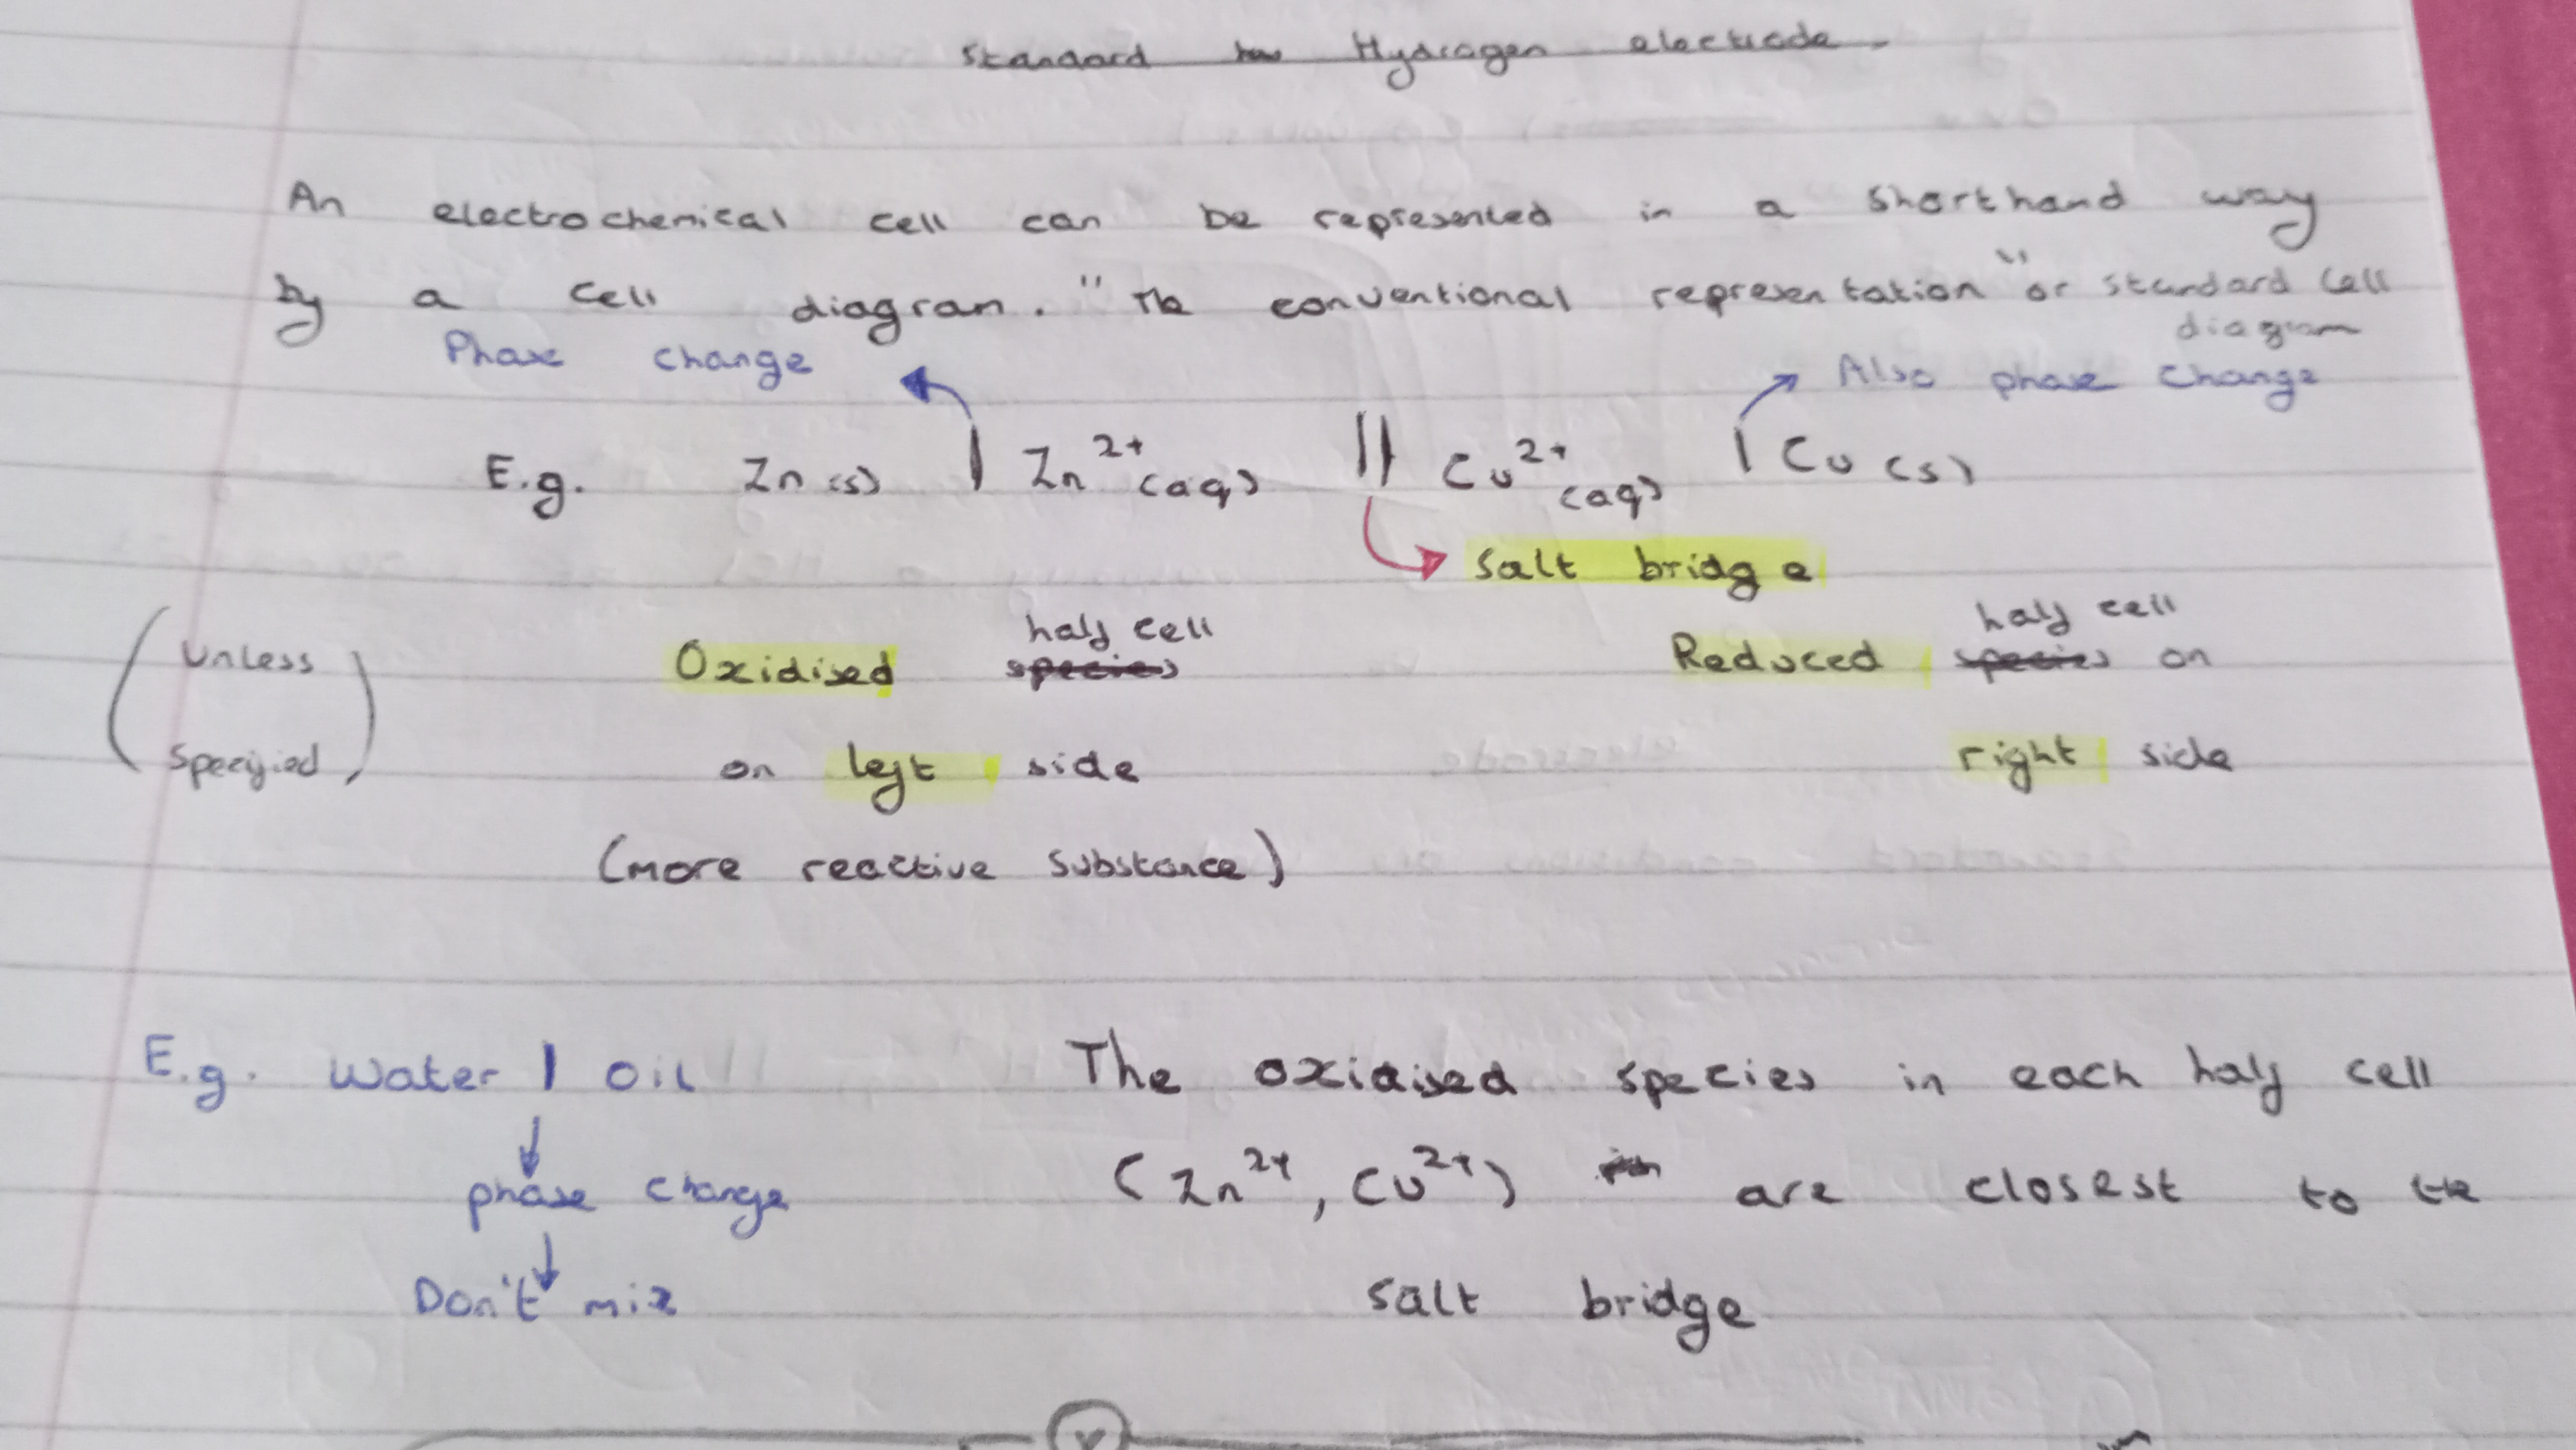 Standard Hydrogen electrode
An electrochemical cell can be represented in a shorthand way
by a cell diagram. "The conventional representation" or standard cell
diagram
Phase change
Also phase change
E.g. Zn (s) | Zn²⁺ (aq) || Cu²⁺ (aq) | Cu (s)
Salt bridge
half cell half cell
(Unless Oxidised species Reduced species on
Specified) on left side right side
(more reactive substance)
E.g. Water | Oil
↓
phase change
↓
Don't mix
The oxidised species in each half cell
(Zn²⁺, Cu²⁺) are closest to the
salt bridge
V